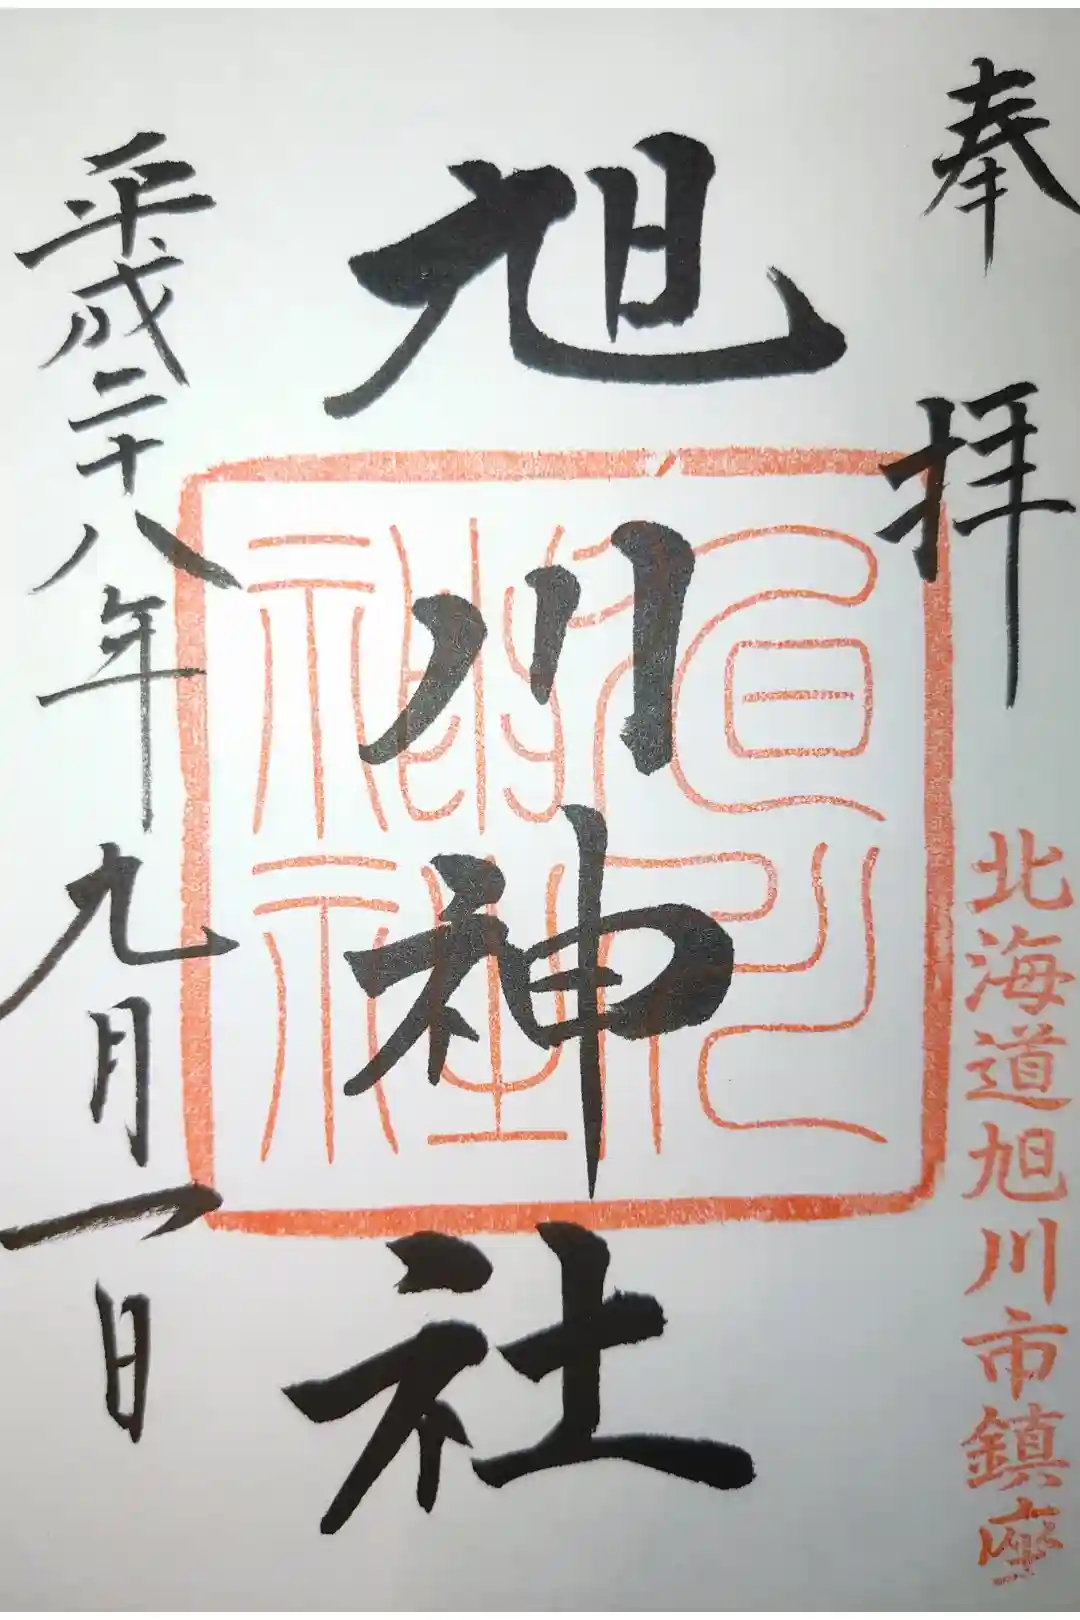 奉拝
北海道旭川市鎮座
旭川神社
旭川神社
平成二十八年九月一日